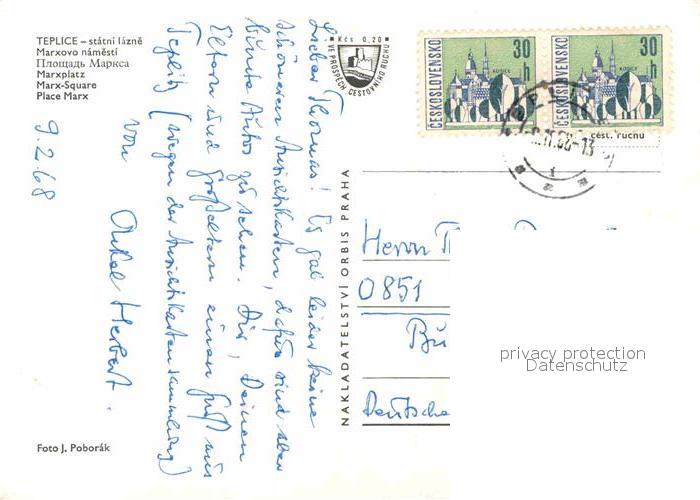 TEPLICE – státní lázně
Marxovo náměstí
Площадь Маркса
Marxplatz
Marx-Square
Place Marx
Kčs 0,20
VE PROSPĚCH CESTOVNÍHO RUCHU
ČESKOSLOVENSKO
30 h
KOŠICE
ČESKOSLOVENSKO
30 h
KOŠICE
cest. ruchu
Lieber Thomas! Es gab leider keine
schöneren Ansichtskarten, dafür sind aber
bunte Autos zu sehen. Dir, Deinen
Eltern und Großeltern einen Gruß aus
Teplitz (wegen der Ansichtskartensammlung)
von
Onkel Herbert.
9.2.68
NAKLADATELSTVÍ ORBIS PRAHA
Herrn
0851
Deutsche
privacy protection
Datenschutz
Foto J. Poborák